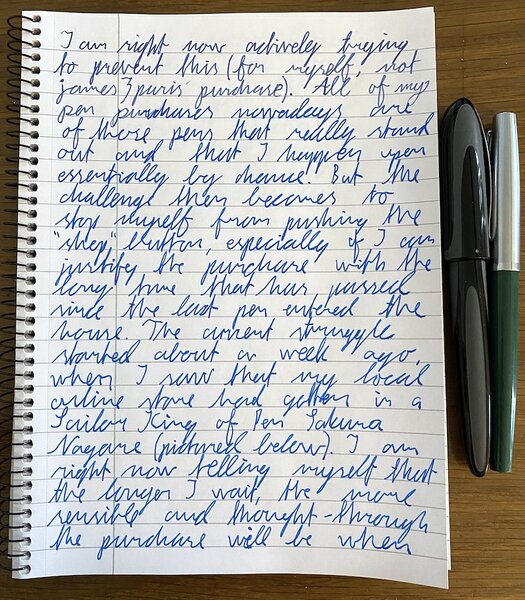 I am right now actively trying
to prevent this (for myself, not
james3paris purchase). All of my
pen purchases nowadays are
of those pens that really stand
out and that I happen upon
essentially by chance. But the
challenge then becomes to
stop myself from pushing the
"shop" button, especially if I can
justify the purchase with the
long time that has passed
since the last pen entered the
house. The current struggle
started about a week ago,
when I saw that my local
online store had gotten in a
Sailor King of Pen Sakura
Nagare (pictured below). I am
right now telling myself that
the longer I wait, the more
sensible and thought-through
the purchase will be when